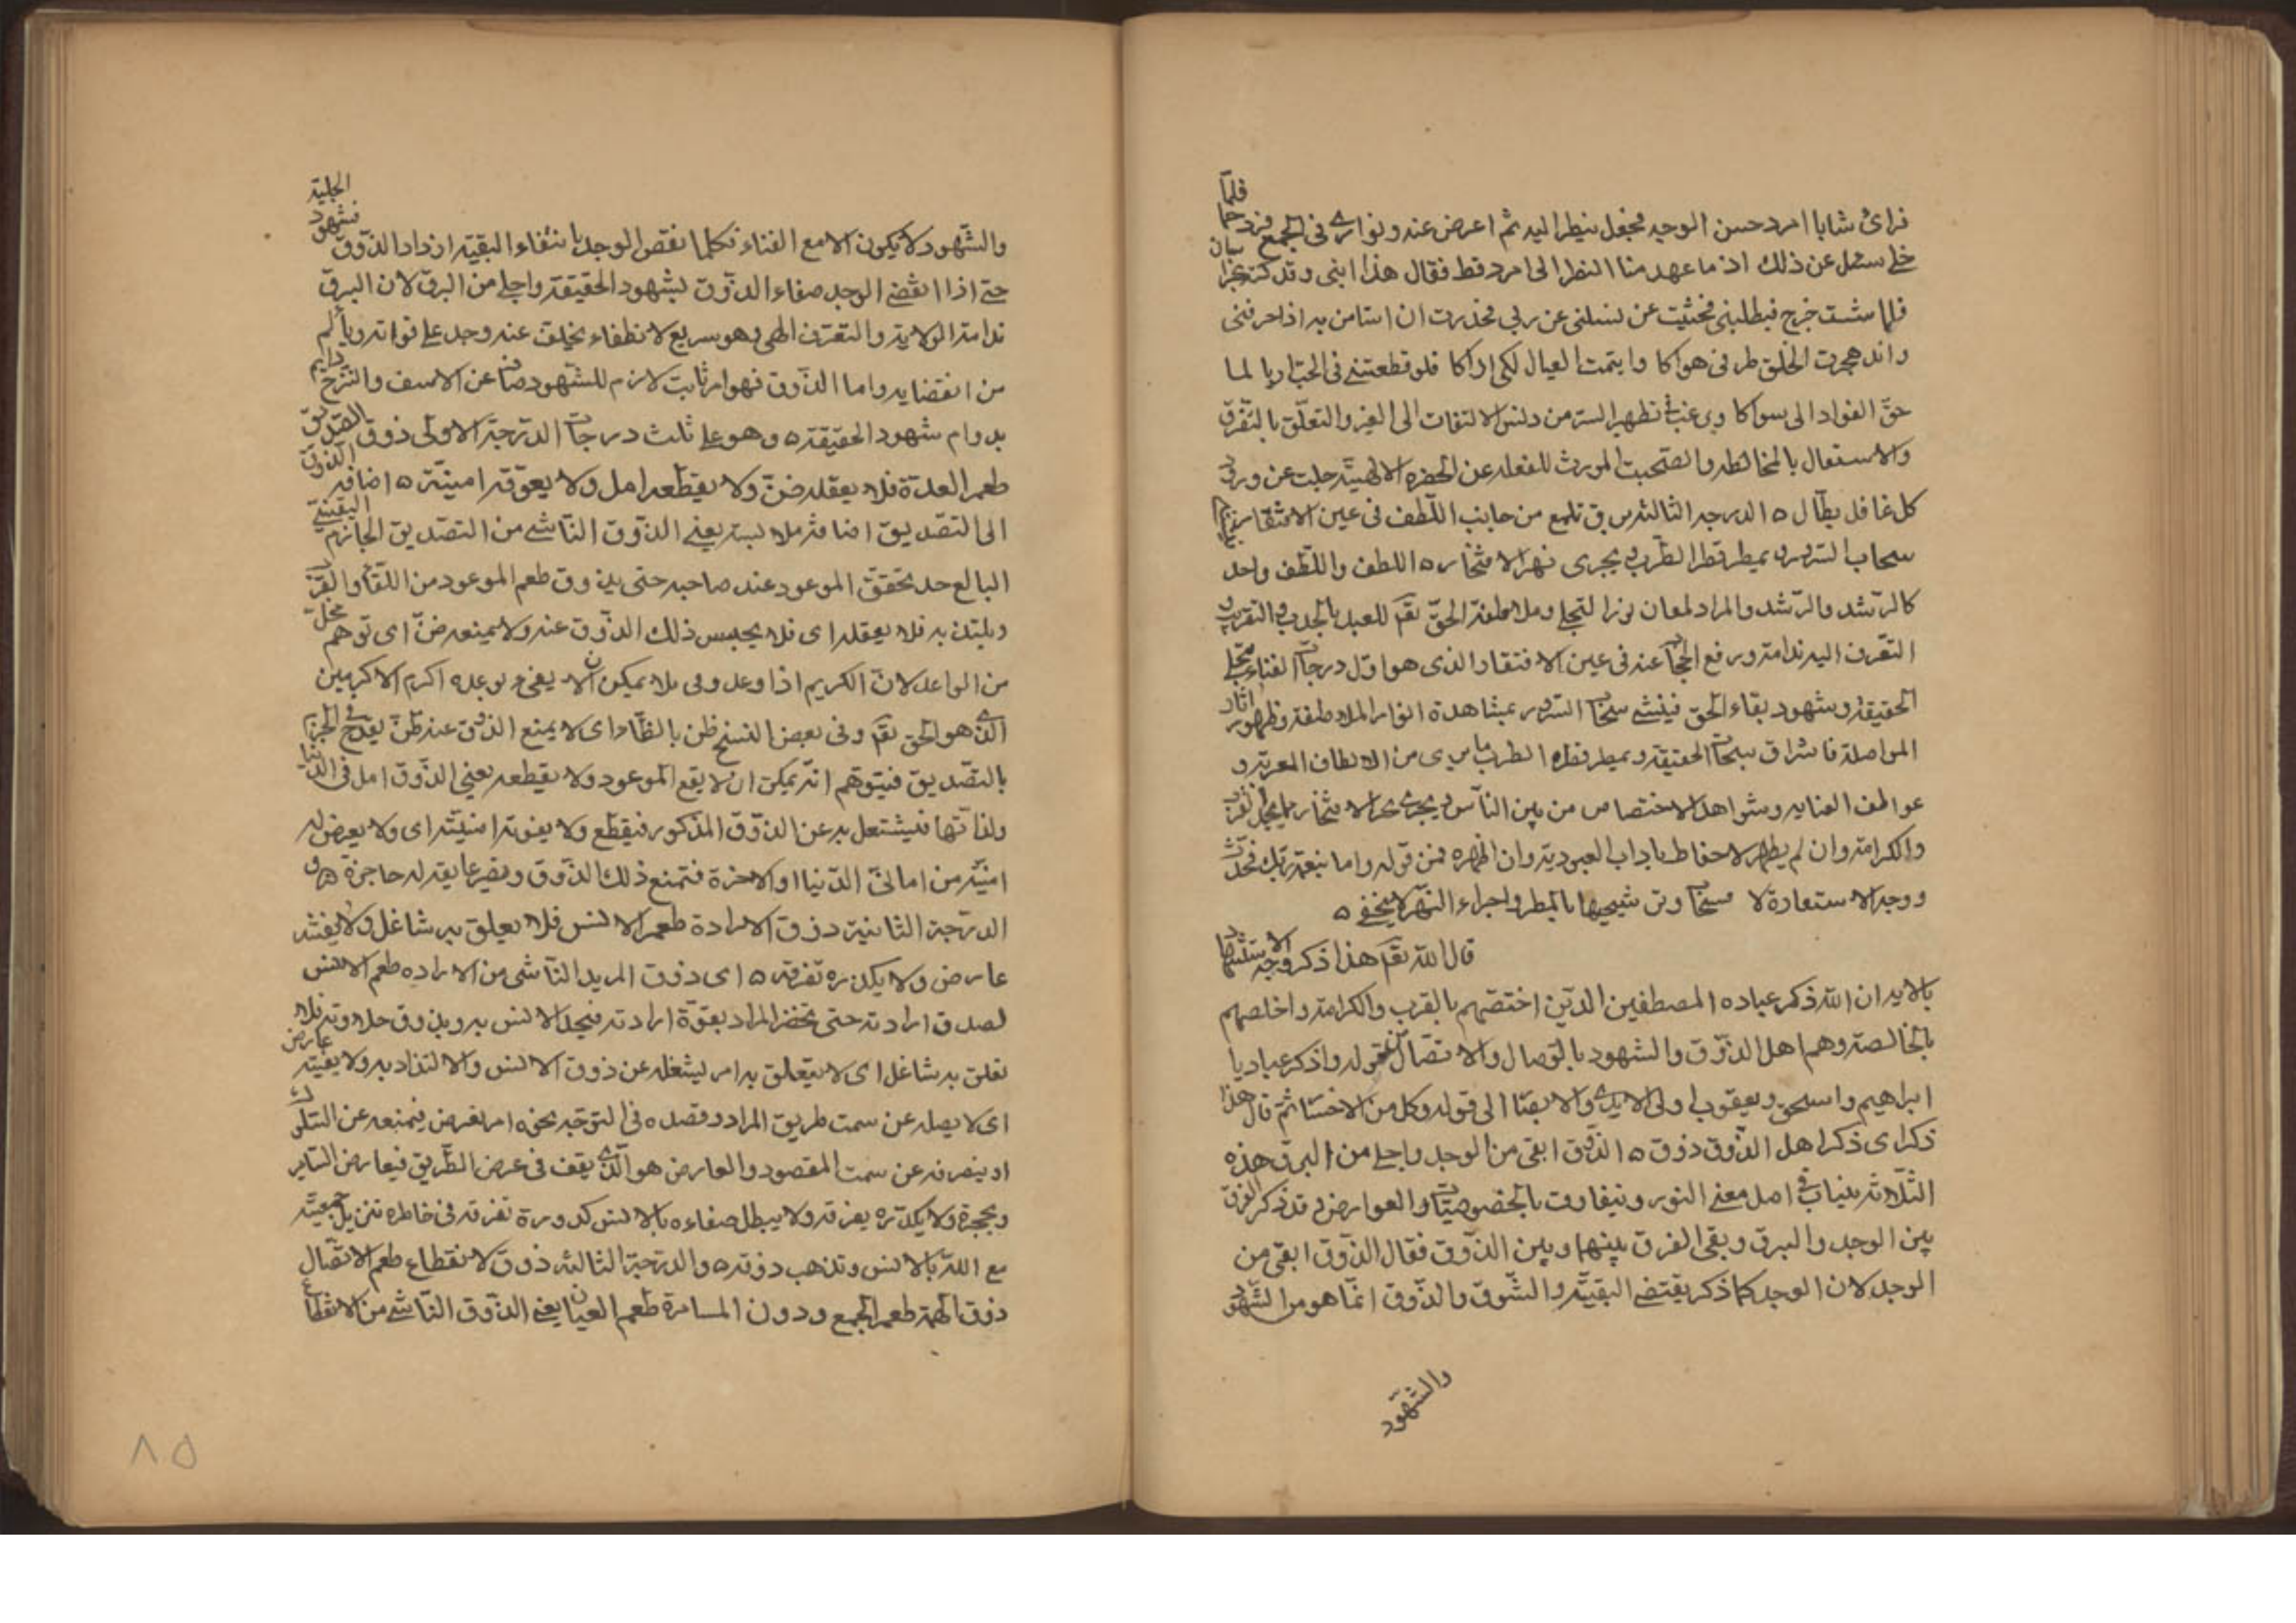 فرأى شابا امرد حسن الوجه فجعل ينظر اليه ثم اعرض عنه وتوارى في الجمع فلما
سئل عن ذلك اذ ما عهد منا النظر الى امرد قط فقال هذا ابنى وقد كنت
فلما شب خرج فيطلبنى فخشيت عن يشغلنى عن ربى فحذرت ان استانس به اذا عرفنى
وانه هجرت الخلق طرا فى هواكا وايتمت العيال لكى اراكا فلو قطعتنى فى الحب اربا لما
حن الفواد الى سواكا تطهير السر من دنس الالتفات الى الغير والتعلق بالتفرق
والاشتغال بالمخالطه والصحبت المورث للغفله عن الحضره الالهية جلت عن ورود
كل غافل بطال ه الدرجه الثالثه برق تلمع من جانب اللطف فى عين الافتقار فينشئ
سحاب السرور ويمطر قطر الطرب ويجرى نهر الافتخار ه اللطف واللطف واحد
كالرشد والرشد والمراد لمعان نور التجلى وملاطفة الحق تقم للعبد بالجذب والتقريب و
التعرف اليه ورفع الحجاب عنه فى عين الافتقار الذى هو اول درجات الفناء بتجلى
الحقيقة وشهود بقاء الحق فينشئ سحاب السرور بمشاهدة انوار الملاطفة وظهور اثار
المواصلة فاشراق سبحات الحقيقة ويمطر قطره الطرب ما يرى من الالطاف المعربة و
عواطف العنايه وشواهد الاختصاص من بين الناس ويجرى نهر الافتخار
والكرامة وان لم يظهر لاحفاظ باداب العبودية وان اظهره فمن قوله واما بنعمة ربك فحدث
ووجه الاستعارة لا وترشيحها بالمطر واجراء النهر لا يخفى ه
قال الله تقم هذا ذكر وجه الاستشهاد
بالايه ان الله ذكر عباده المصطفين الذين اختصهم بالقرب والكرامة واخلصهم
بالخالصة وهم اهل الذوق والشهود بالوصال والاتصال من قوله واذكر عباديا
ابراهيم واسحق ويعقوب اولى الايدى والابصار الى قوله وكل من الاخيار ثم قال هذا
ذكر اى ذكر اهل الذوق ذوق ه الذوق ابقى من الوجد واجلى من البرق هذه
الثلاثة فى اصل معنى النور وتتفاوت بالخصوصيات والعوارض وقد ذكر الفرق
بين الوجد والبرق وبقى الفرق بينهما وبين الذوق فقال الذوق ابقى من
الوجد لان الوجد كما ذكر يقتضى البقية والشوق والذوق انما هو من الشهود
والشهود
والشهود لا يكون الا مع الفناء فكلما نقص الوجد بانتفاء البقية ازداد الذوق
حتى اذا انقضى الوجد صفاء الذوق بشهود الحقيقة الجلية واجلى من البرق لان البرق
الولاية والتعرف الهى وهو سريع الانطفاء يخلف عنه وجد على فواته وبألم
من انقضايه واما الذوق فهو امر ثابت لازم للشهود صاف عن الاسف والترح دايم
بدوام شهود الحقيقة ه وهو على ثلث درجات الدرجة الاولى ذوق التصديق
طعم العدة فلا يعقله ضن ولا يقطعه امل ولا يعوقه امنية ه اضافه الذوق
الى التصديق اضافة ملابسة يعنى الذوق الناشى من التصديق الجازم اليقينى
البالغ حد تحقق الموعود عند صاحبه حتى يذوق طعم الموعود من اللقاء والقرب
ويلتذ به فلا يعقله اى فلا يحبس ذلك الذوق عنه ولا يمنعه ضن اى توهم بخل
من الواعد لان الكريم اذا وعد وفى بلا يمكن ان لا يفى بوعده اكرم الاكرمين
الذى هو الحق تقم وفى بعض النسخ ظن بالظاء اى لا يمنع الذوق عنه ظن يقدح فى الجزم
بالتصديق فيتوهم انه يمكن ان لا يقع الموعود ولا يقطعه يعنى الذوق امل فى الدنيا
ولذاتها فيشتغل به عن الذوق المذكور فينقطع ولا يعوقه امنية اى ولا يعرض له
امنية من امانى الدنيا او الاخرة فتمنع ذلك الذوق ويصير عايقة له حاجزة ه و
الدرجة الثانية ذوق الارادة طعم الانس فلا يعلق به شاغل ولا يفتنه
عارض ولا يكدره تفرقه ه اى ذوق المريد الناشى من الاراده طعم الانس
لصدق ارادته حتى تحضر المراد بقوة ارادته فيجد الانس به ويذوق حلاوته فلا
تعلق به شاغل اى لا يتعلق به امر يشغله عن ذوق الانس والالتذاذ به ولا يفتنه عارض
اى لا يصله عن سمت طريق المراد وقصده فى التوجه نحوه امر يعرض فيمنعه عن السلوك
او ينصرفه عن سمت المقصود والعارض هو الذى يقف فى عرض الطريق فيعارض الساير
ويحجزه ولا يكدره تفرقه ولا يبطل صفاءه بالانس كدورة تفرقه فى خاطره تزيل جمعيته
مع الله بالانس وتذهب ذوقه ه والدرجة الثالثه ذوق الانقطاع طعم الاتصال
ذوق الهمة طعم الجمع وذوق المسامرة طعم العيان يعنى الذوق الناشى من الانقطاع
٨٥